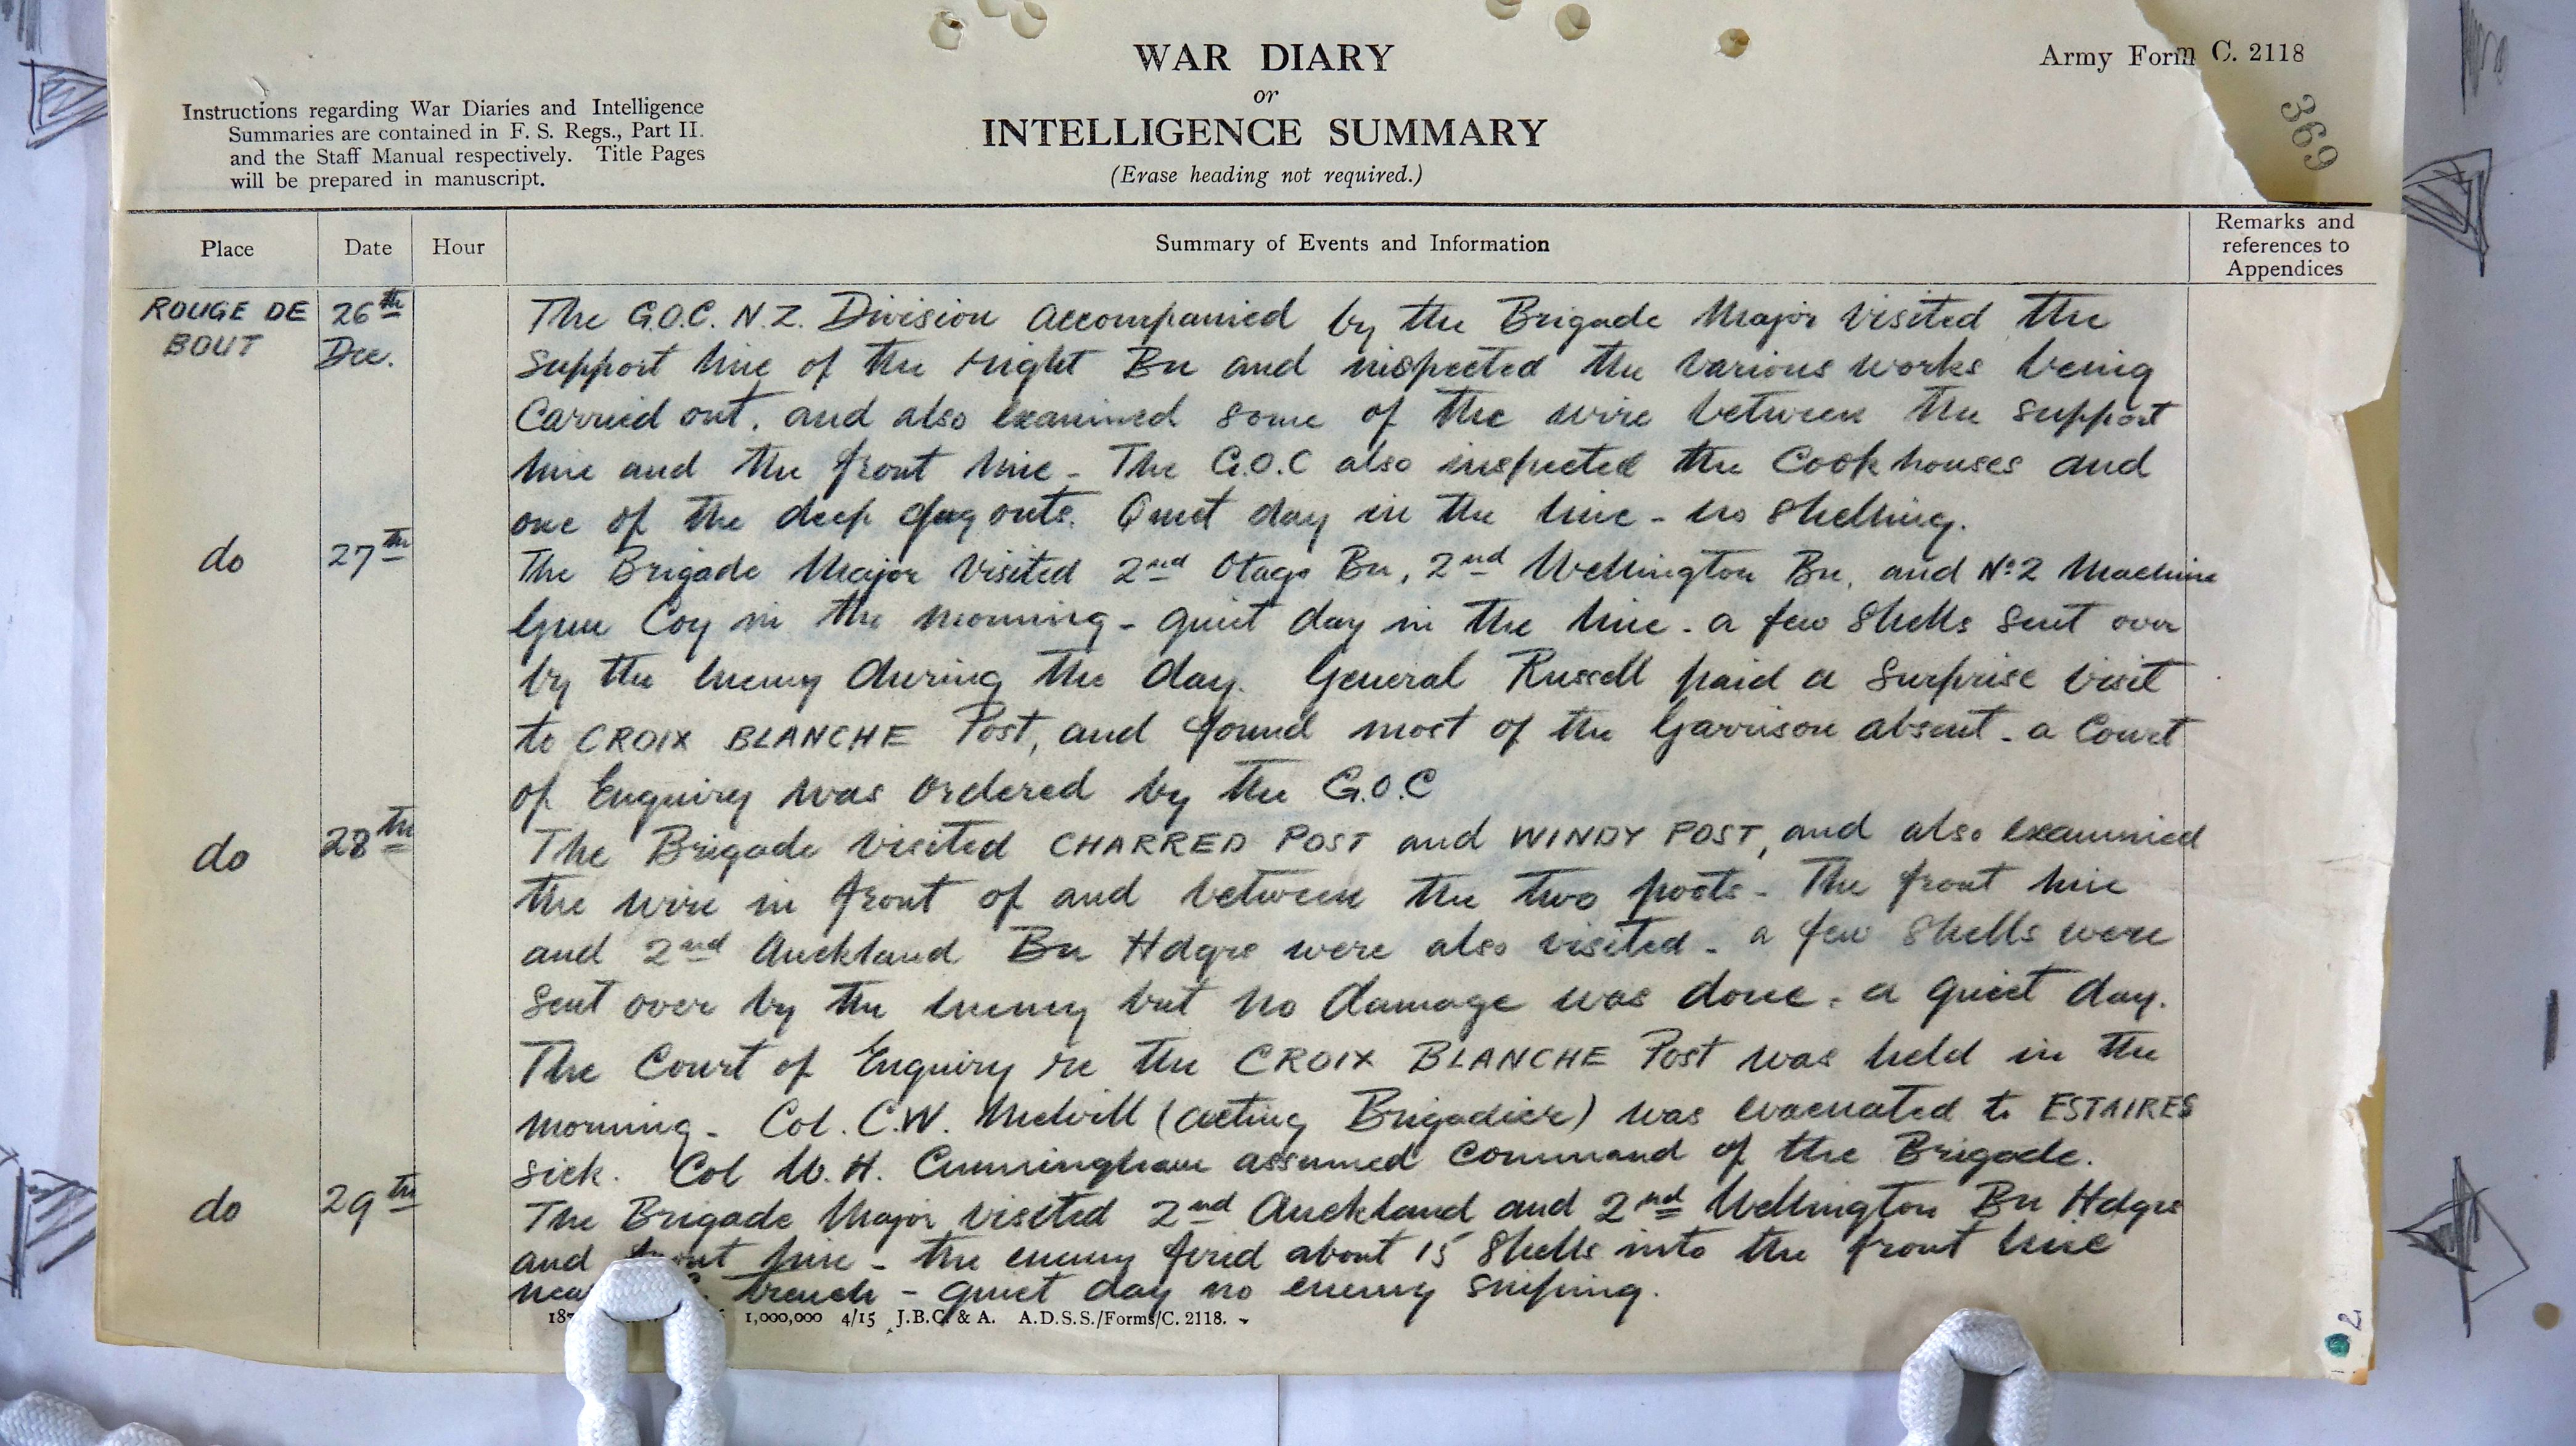 WAR DIARY
or
INTELLIGENCE SUMMARY
(Erase heading not required.)
Army Form C. 2118
369
Instructions regarding War Diaries and Intelligence
Summaries are contained in F. S. Regs., Part II.
and the Staff Manual respectively. Title Pages
will be prepared in manuscript.
Place Date Hour Summary of Events and Information Remarks and references to Appendices
ROUGE DE BOUT 26th Dec. The G.O.C. N.Z. Division accompanied by the Brigade Major visited the
support line of the right Bn and inspected the various works being
carried out, and also examined some of the wire between the support
line and the front line - The G.O.C also inspected the Cook houses and
one of the deep dug outs. Quiet day in the line - no shelling.
do 27th The Brigade Major visited 2nd Otago Bn, 2nd Wellington Bn, and No 2 Machine
Gun Coy in the morning - quiet day in the line - a few shells sent over
by the enemy during the day. General Russell paid a surprise visit
to CROIX BLANCHE Post, and found most of the Garrison absent - a Court
of Enquiry was ordered by the G.O.C
do 28th The Brigade visited CHARRED POST and WINDY POST, and also examined
the wire in front of and between the two posts - The front line
and 2nd Auckland Bn Hdqrs were also visited - a few shells were
sent over by the enemy but no damage was done - a quiet day.
The Court of Enquiry re the CROIX BLANCHE Post was held in the
morning - Col. C.W. Melvill (acting Brigadier) was evacuated to ESTAIRES
sick. Col W. H. Cunningham assumed command of the Brigade.
do 29th The Brigade Major visited 2nd Auckland and 2nd Wellington Bn Hdqrs
and front line - the enemy fired about 15 shells into the front line
trench - quiet day no enemy sniping.
1,000,000 4/15 J.B.C. & A. A.D.S.S./Forms/C. 2118.
2